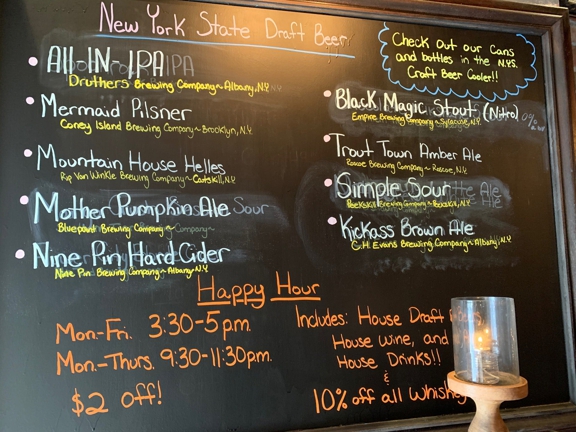 New York State Draft Beer
All IN-IPA
Druthers Brewing Company~Albany, N.Y.
Mermaid Pilsner
Coney Island Brewing Company~Brooklyn, N.Y.
Mountain House Helles
Rip Van Winkle Brewing Company~Catskill, N.Y.
Mother Pumpkin Ale
Bluepoint Brewing Company~
Nine Pin Hard Cider
Nine Pin Brewing Company~Albany N.Y.
Check Out our Cans
and bottles in the N.Y.S.
Craft Beer Cooler!!
Black Magic Stout (Nitro)
Empire Brewing Company~Syracuse, N.Y.
Trout Town Amber Ale
Roscoe Brewing Company~Roscoe, N.Y.
Simple Sour
Brewing Company~
Kickass Brown Ale
C.H. Evans Brewing Company~Albany, N.Y.
Happy Hour
Mon-Fri. 3:30-5pm.
Mon-Thurs. 9:30-11:30pm.
$2 off!
Includes: House Draft
House Wine, and
House Drinks!!
&
10% off all Whiskey